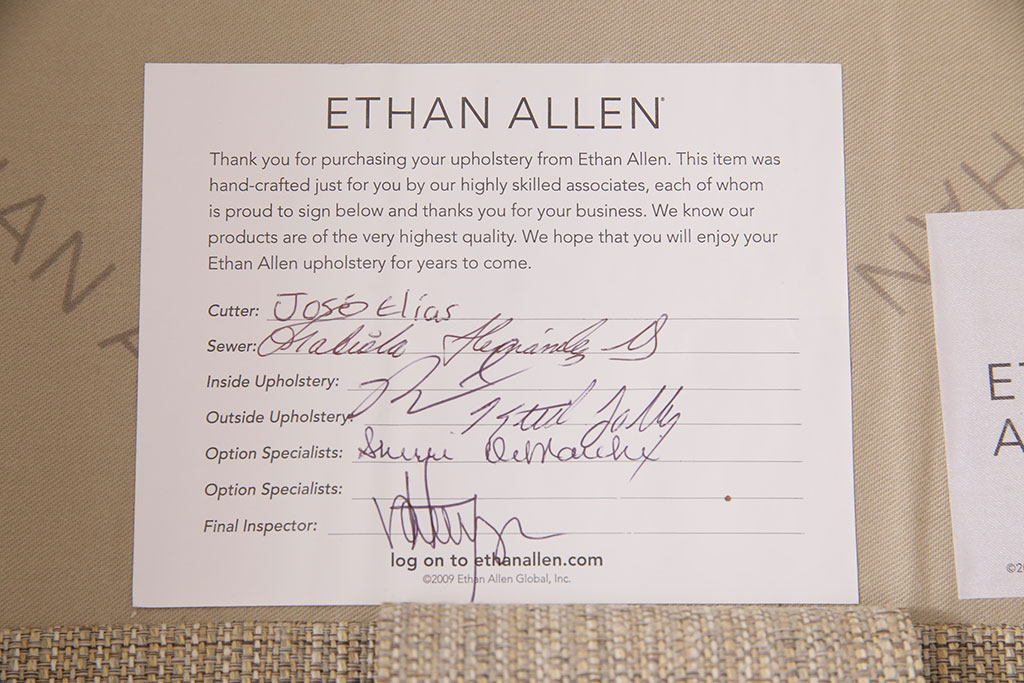 ETHAN ALLEN®
Thank you for purchasing your upholstery from Ethan Allen. This item was
hand-crafted just for you by our highly skilled associates, each of whom
is proud to sign below and thanks you for your business. We know our
products are of the very highest quality. We hope that you will enjoy your
Ethan Allen upholstery for years to come.
Cutter: José Elías
Sewer: Hernández
Inside Upholstery:
Outside Upholstery:
Option Specialists:
Option Specialists:
Final Inspector:
log on to ethanallen.com
©2009 Ethan Allen Global, Inc.